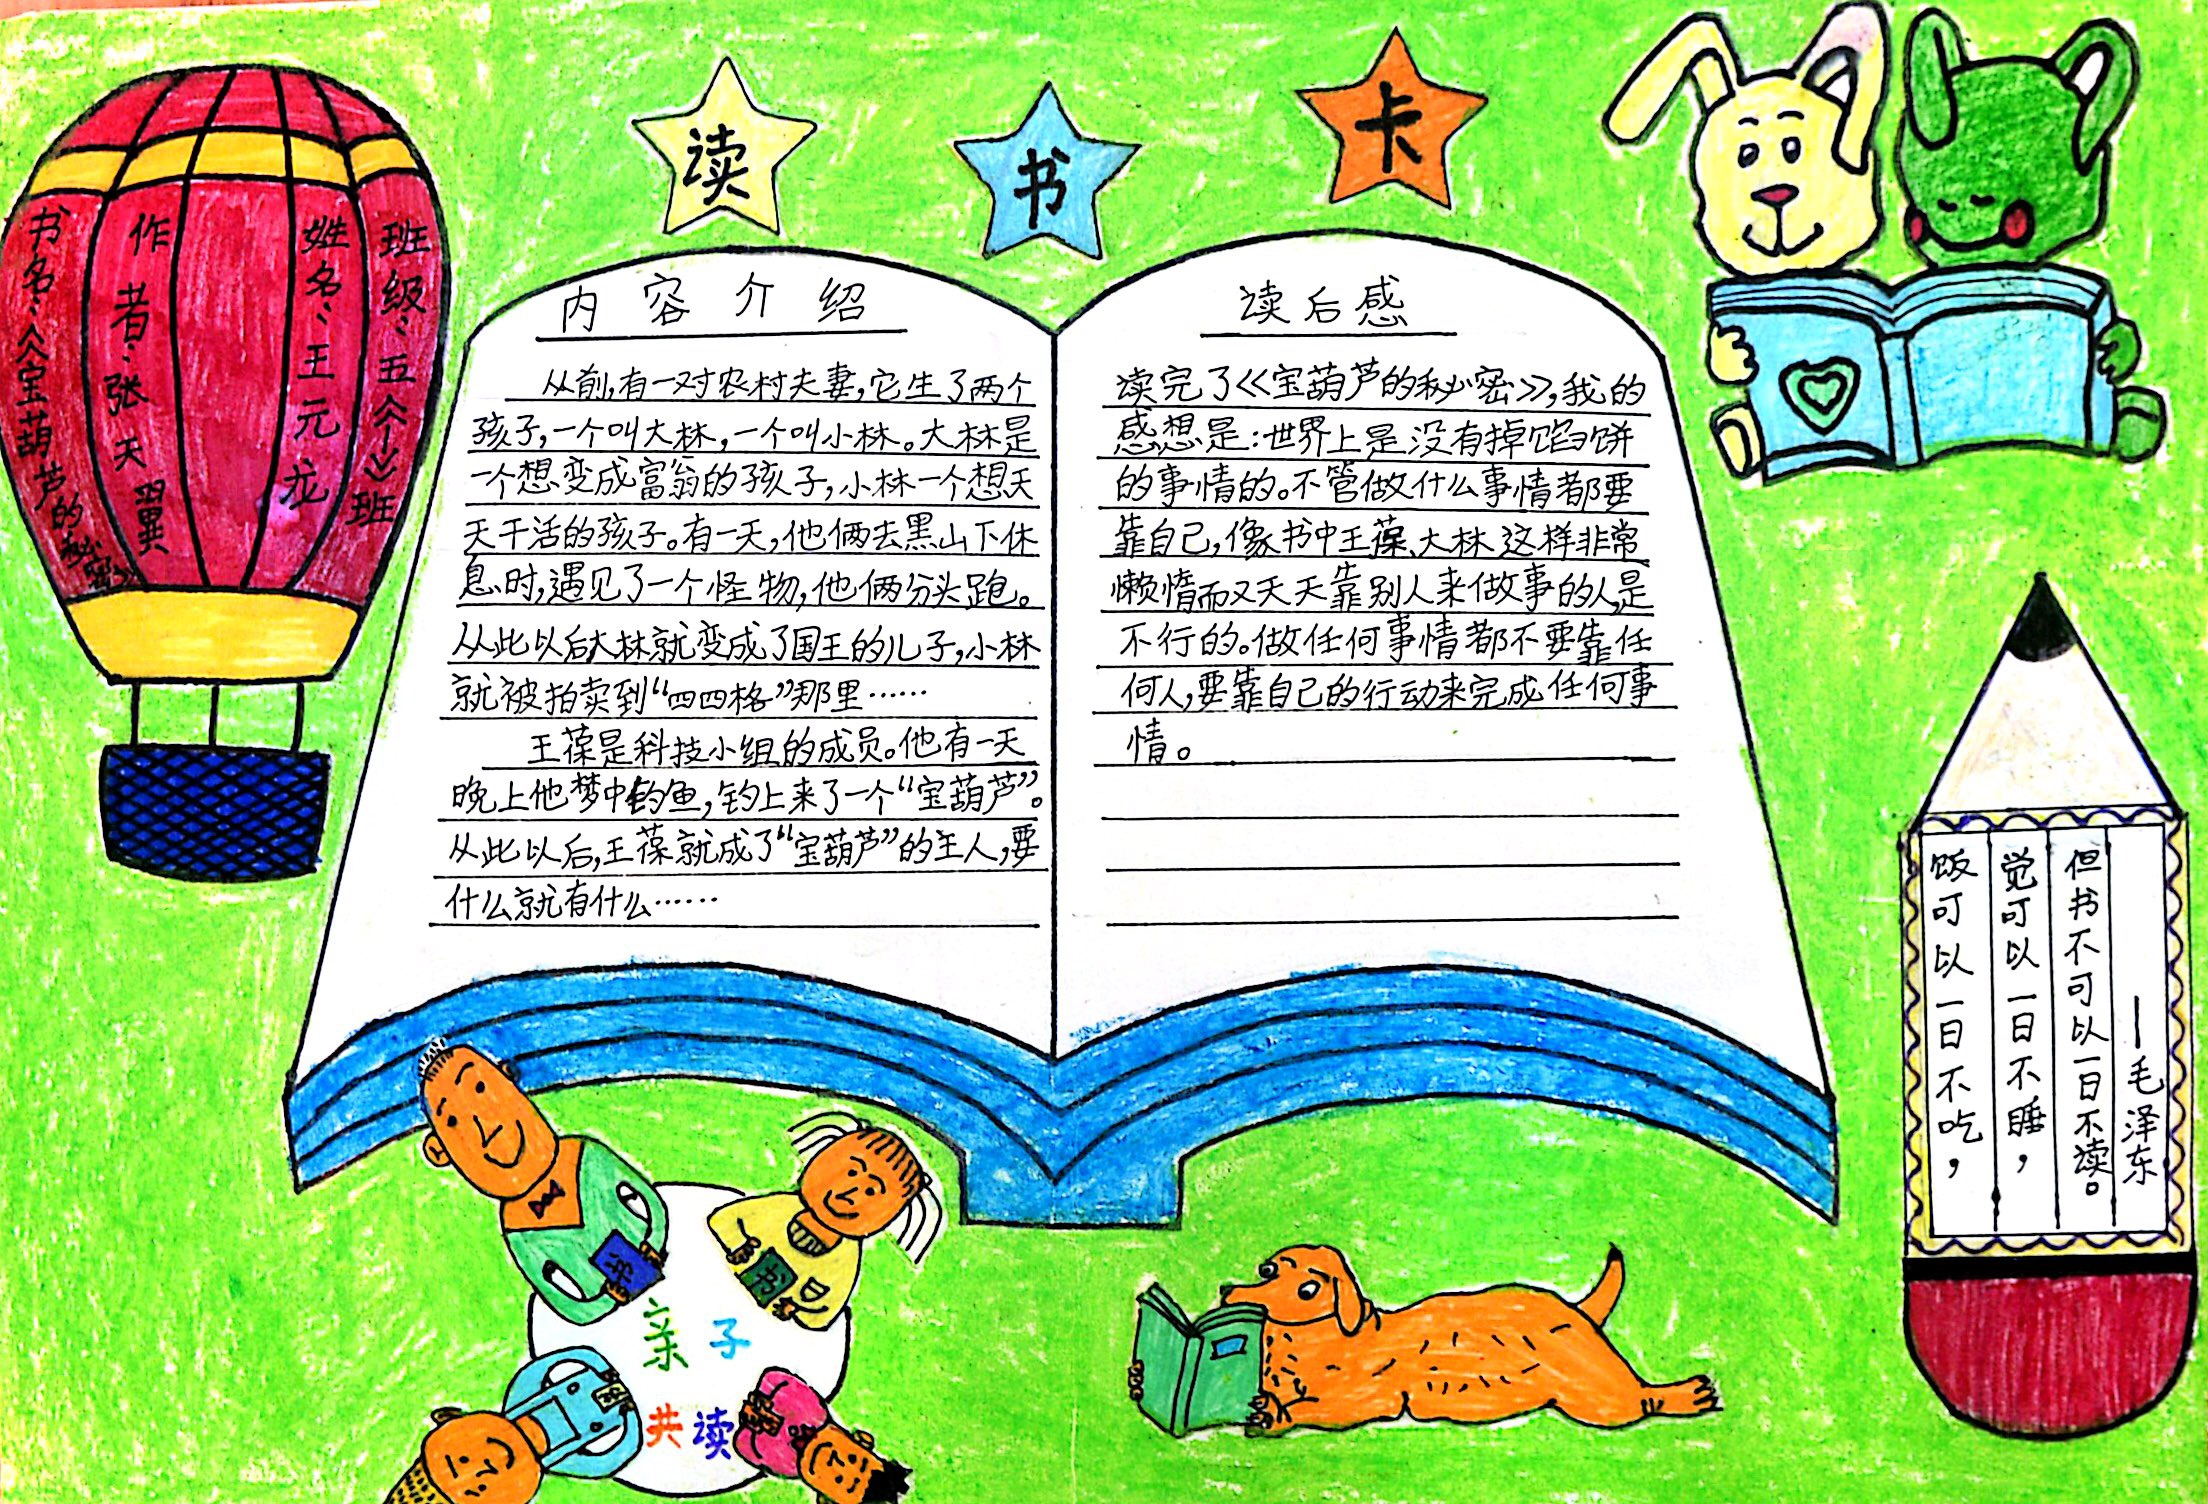 读书卡
书名：《宝葫芦的秘密》
作者：张天翼
姓名：王元龙
班级：五《一》班
内容介绍
从前,有一对农村夫妻,它生了两个
孩子,一个叫大林,一个叫小林。大林是
一个想变成富翁的孩子,小林一个想天
天干活的孩子。有一天,他俩去黑山下休
息时,遇见了一个怪物,他俩分头跑。
从此以后大林就变成了国王的儿子,小林
就被拍卖到“四四格”那里……
王葆是科技小组的成员。他有一天
晚上他梦中钓鱼,钓上来了一个“宝葫芦”。
从此以后,王葆就成了“宝葫芦”的主人,要
什么就有什么……
读后感
读完了《宝葫芦的秘密》,我的
感想是:世界上是没有掉馅饼
的事情的。不管做什么事情都要
靠自己,像书中王葆、大林这样非常
懒惰而又天天靠别人来做故事的人,是
不行的。做任何事情都不要靠任
何人,要靠自己的行动来完成任何事
情。
饭可以一日不吃，
觉可以一日不睡，
但书不可以一日不读。
——毛泽东
书
书
亲子
共读